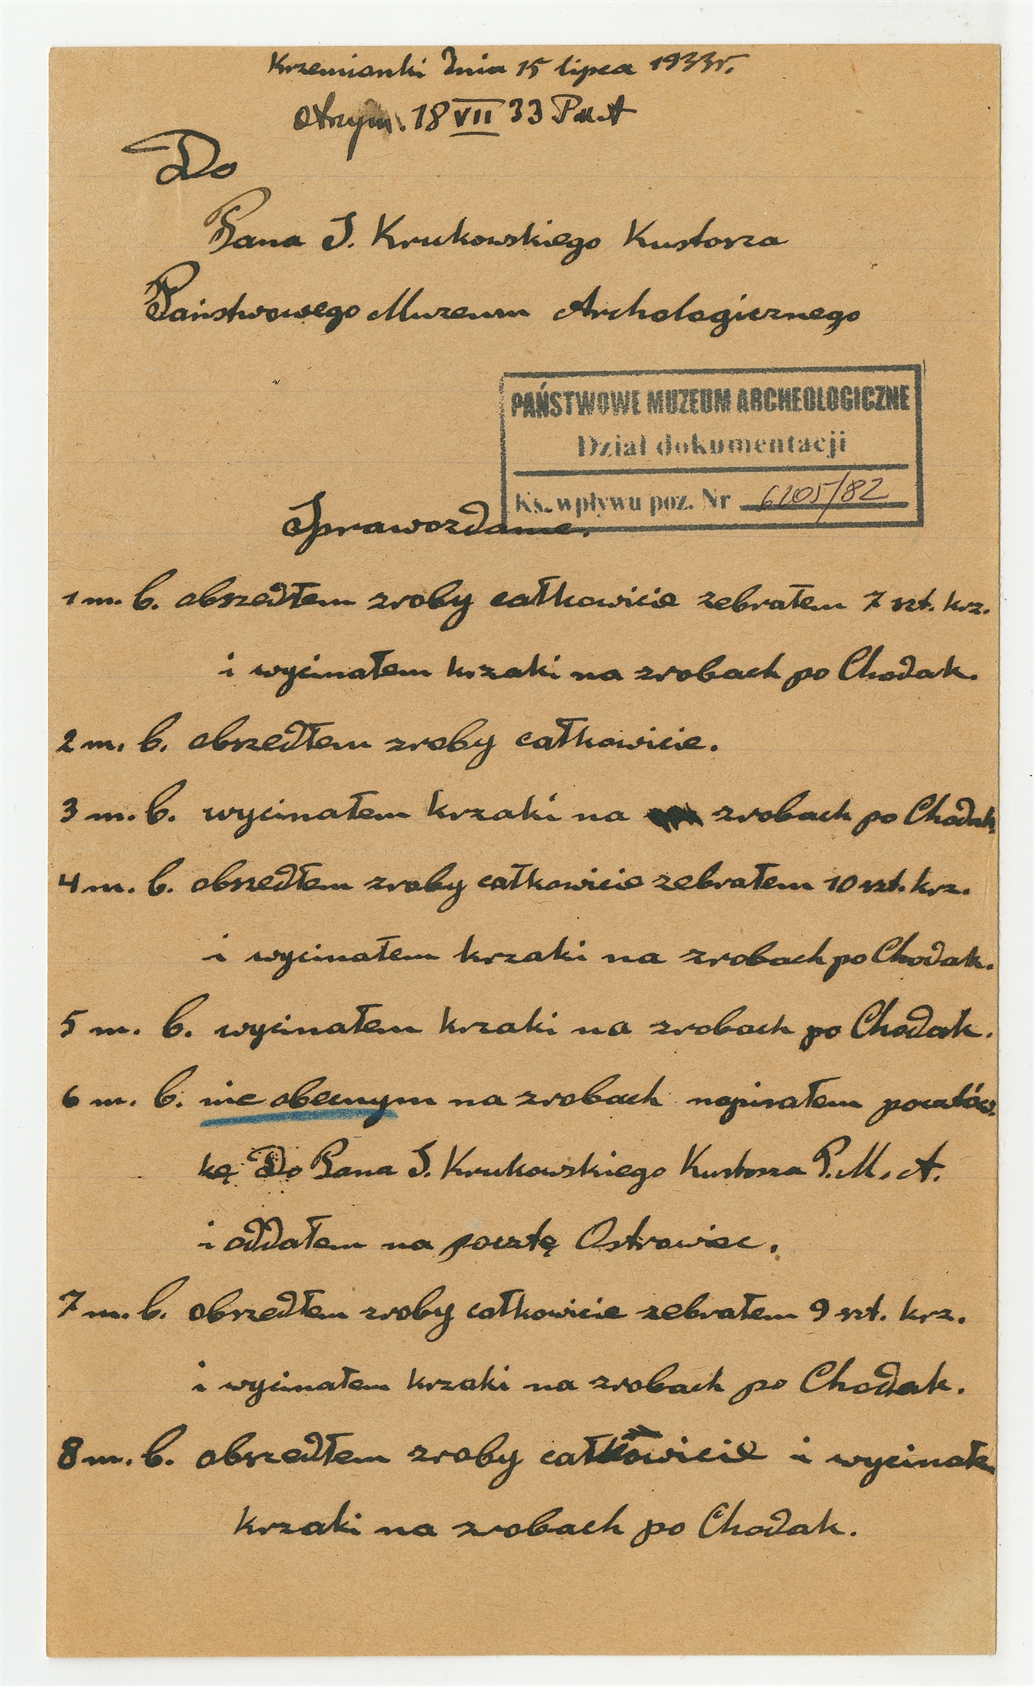 Krzemionki Dnia 15 lipca 1933r.
otrzym. 18 VII 33 P.M.A
Do
Pana S. Krukowskiego Kustosza
Państwowego Muzeum Archologicznego
PAŃSTWOWE MUZEUM ARCHEOLOGICZNE
Dział dokumentacji
Ks. wpływu poz. Nr 6205/82
Sprawozdanie.
1 m. b. obszedłem zroby całkowicie zebrałem 7 szt. krz.
i wycinałem krzaki na zrobach po Chodak.
2 m. b. obszedłem zroby całkowicie.
3 m. b. wycinałem krzaki na zrobach po Chodak
4 m. b. obszedłem zroby całkowicie zebrałem 10 szt. krz.
i wycinałem krzaki na zrobach po Chodak.
5 m. b. wycinałem krzaki na zrobach po Chodak.
6 m. b. nie obecnym na zrobach napisałem pocztów
kę Do Pana S. Krukowskiego Kustosza P. M. A.
i oddałem na pocztę Ostrowiec.
7 m. b. obszedłem zroby całkowicie zebrałem 9 szt. krz.
i wycinałem krzaki na zrobach po Chodak.
8 m. b. obszedłem zroby całkowicie i wycinałe
krzaki na zrobach po Chodak.